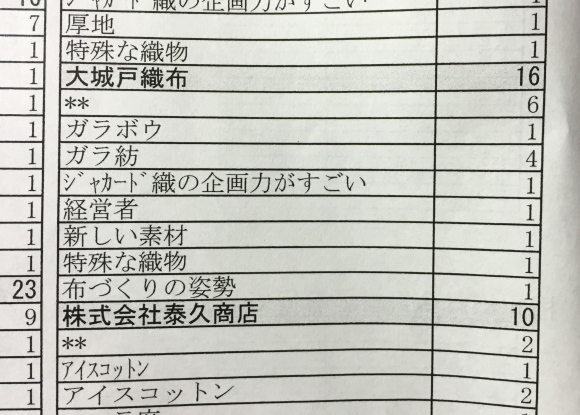 ｼﾞｬｶｰﾄﾞ織の企画力がすごい 1
7 厚地 1
1 特殊な織物 1
1 大城戸織布 16
1 ** 6
1 ガラボウ 1
1 ガラ紡 4
1 ｼﾞｬｶｰﾄﾞ織の企画力がすごい 1
1 経営者 1
1 新しい素材 1
1 特殊な織物 1
23 布づくりの姿勢 1
9 株式会社泰久商店 10
1 ** 2
1 ｱｲｽｺｯﾄﾝ 1
1 アイスコットン 2